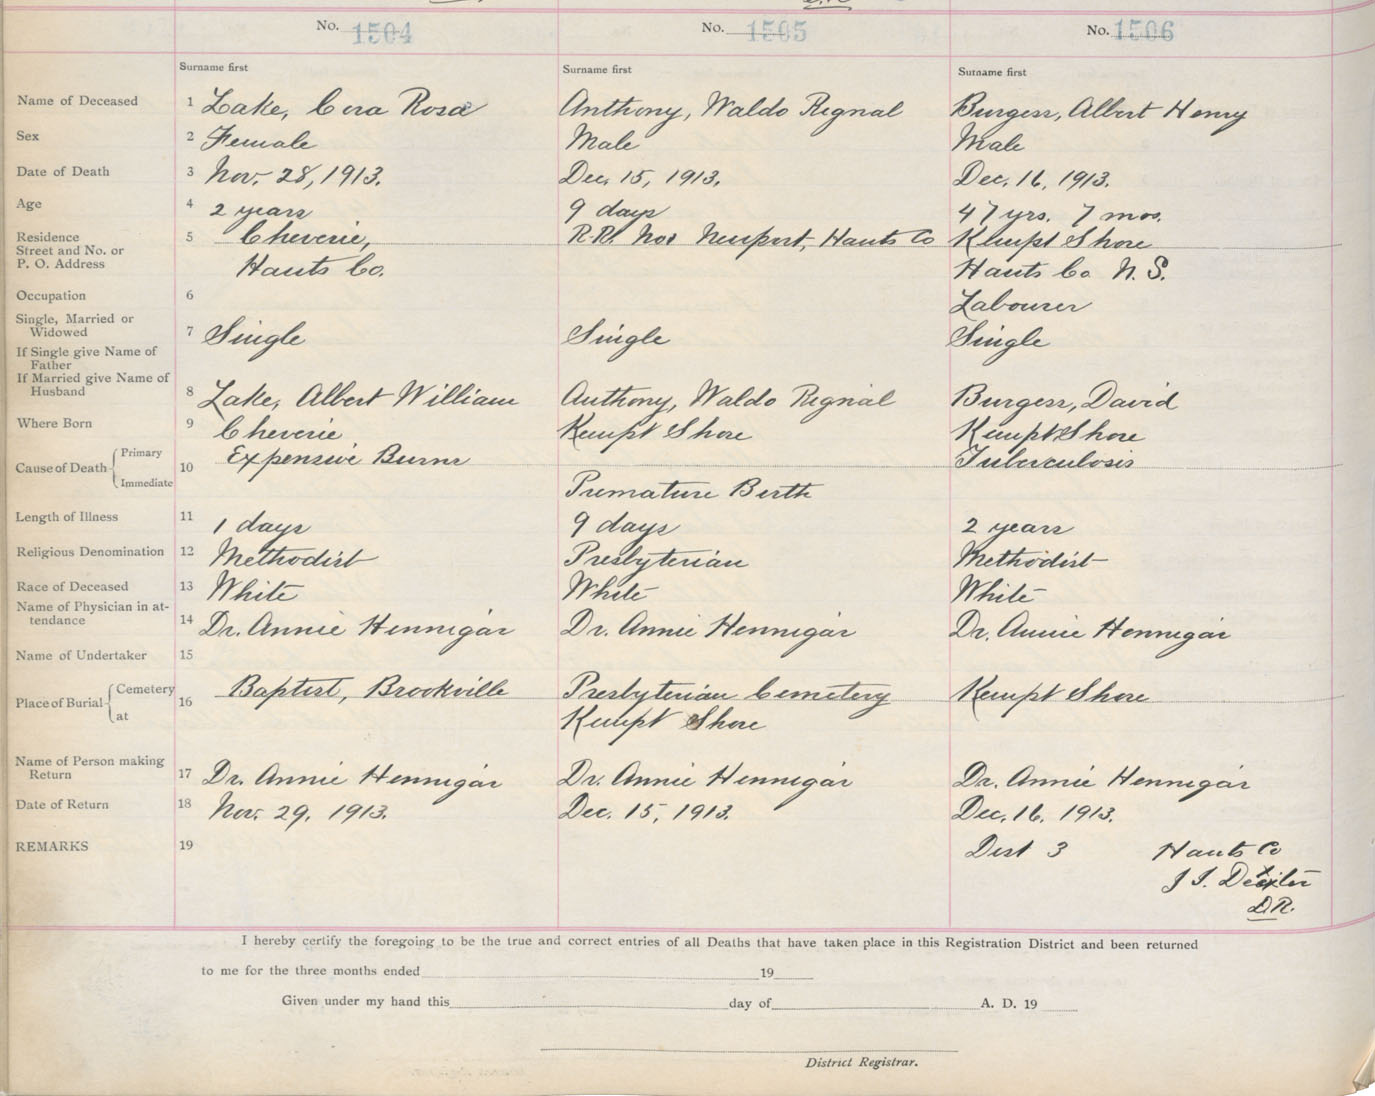 No. 1504 No. 1505 No. 1506
Surname first Surname first Surname first
Name of Deceased 1 Lake, Cora Rosa Anthony, Waldo Regnal Burgess, Albert Henry
Sex 2 Female Male Male
Date of Death 3 Nov. 28, 1913. Dec. 15, 1913. Dec. 16, 1913.
Age 4 2 years 9 days 47 yrs. 7 mos.
Residence 5 Cheverie, R.R. No1 Newport, Hants Co Kempt Shore
Street and No. or
P. O. Address Hants Co. Hants Co N. S.
Occupation 6 Labourer
Single, Married or
Widowed 7 Single Single Single
If Single give Name of
Father
If Married give Name of
Husband 8 Lake, Albert William Anthony, Waldo Regnal Burgess, David
Where Born 9 Cheverie Kempt Shore Kempt Shore
Cause of Death Primary 10 Expensive Burns Tuberculosis
Immediate Premature Berth
Length of Illness 11 1 days 9 days 2 years
Religious Denomination 12 Methodist Presbyterian Methodist
Race of Deceased 13 White White White
Name of Physician in at-
tendance 14 Dr. Annie Hennigar Dr. Annie Hennigar Dr. Annie Hennigar
Name of Undertaker 15
Place of Burial Cemetery 16 Baptist, Brookville Presbyterian Cemetery Kempt Shore
at Kempt Shore
Name of Person making
Return 17 Dr. Annie Hennigar Dr. Annie Hennigar Dr. Annie Hennigar
Date of Return 18 Nov. 29, 1913. Dec. 15, 1913. Dec. 16, 1913.
REMARKS 19 Dist 3 Hants Co
Dexter
D.R.
I hereby certify the foregoing to be the true and correct entries of all Deaths that have taken place in this Registration District and been returned
to me for the three months ended 19
Given under my hand this day of A. D. 19
District Registrar.